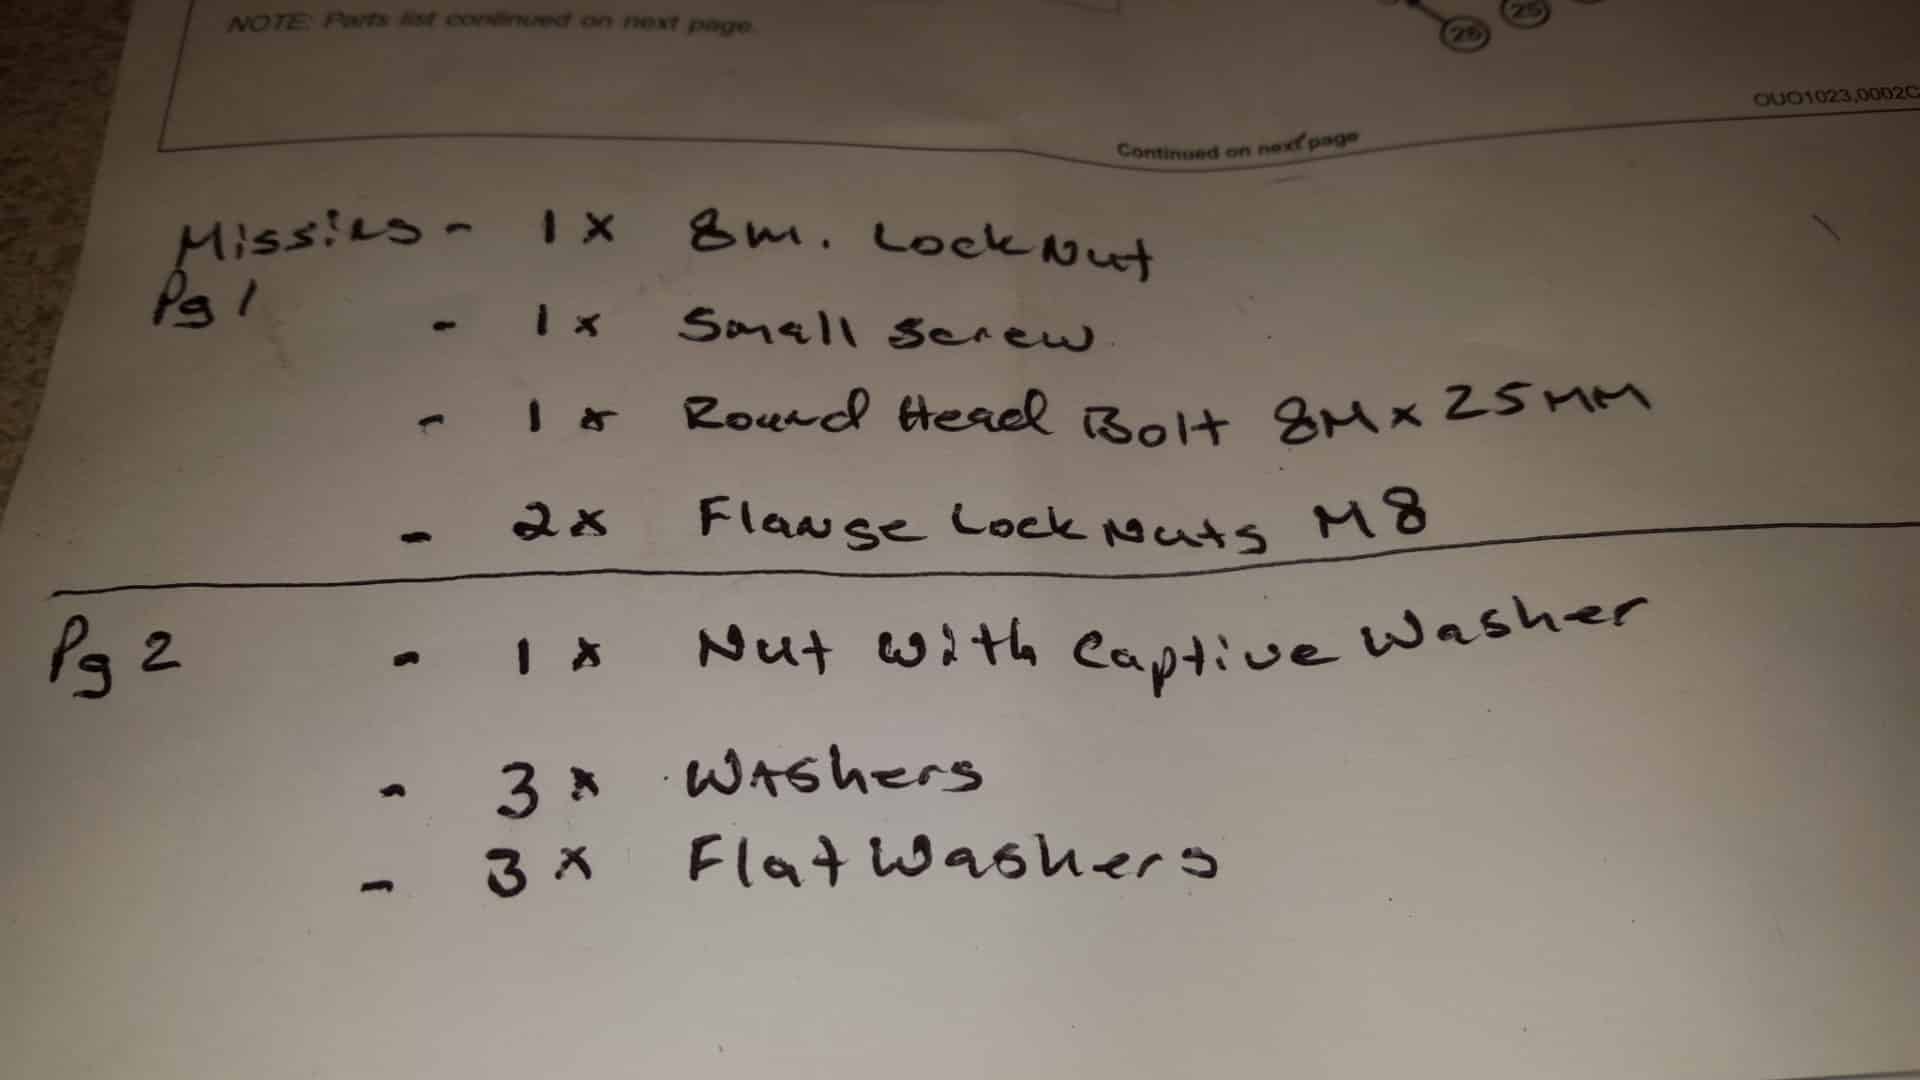 NOTE: Parts list continued on next page.
26
25
OUO1023,0002C
Continued on next page
Missing - 1 x 8m. Lock Nut
Pg 1
- 1 x Small Screw
- 1 x Round Head Bolt 8M x 25MM
- 2 x Flange Lock Nuts M8
Pg 2 - 1 x Nut With Captive Washer
- 3 x Washers
- 3 x Flat Washers